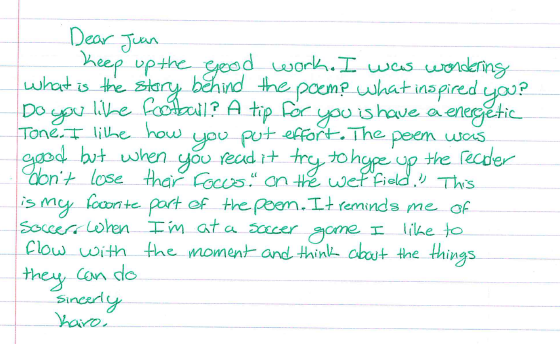 Dear Juan
Keep up the good work. I was wondering
what is the story behind the poem? what inspired you?
Do you like football? A tip for you is have a energetic
Tone. I like how you put effort. The poem was
good but when you read it try to hype up the reader
"don't lose their focus." on the wet field." This
is my favorite part of the poem. It reminds me of
soccer. When I'm at a soccer game I like to
flow with the moment and think about the things
they can do
sincerly
Kairo.